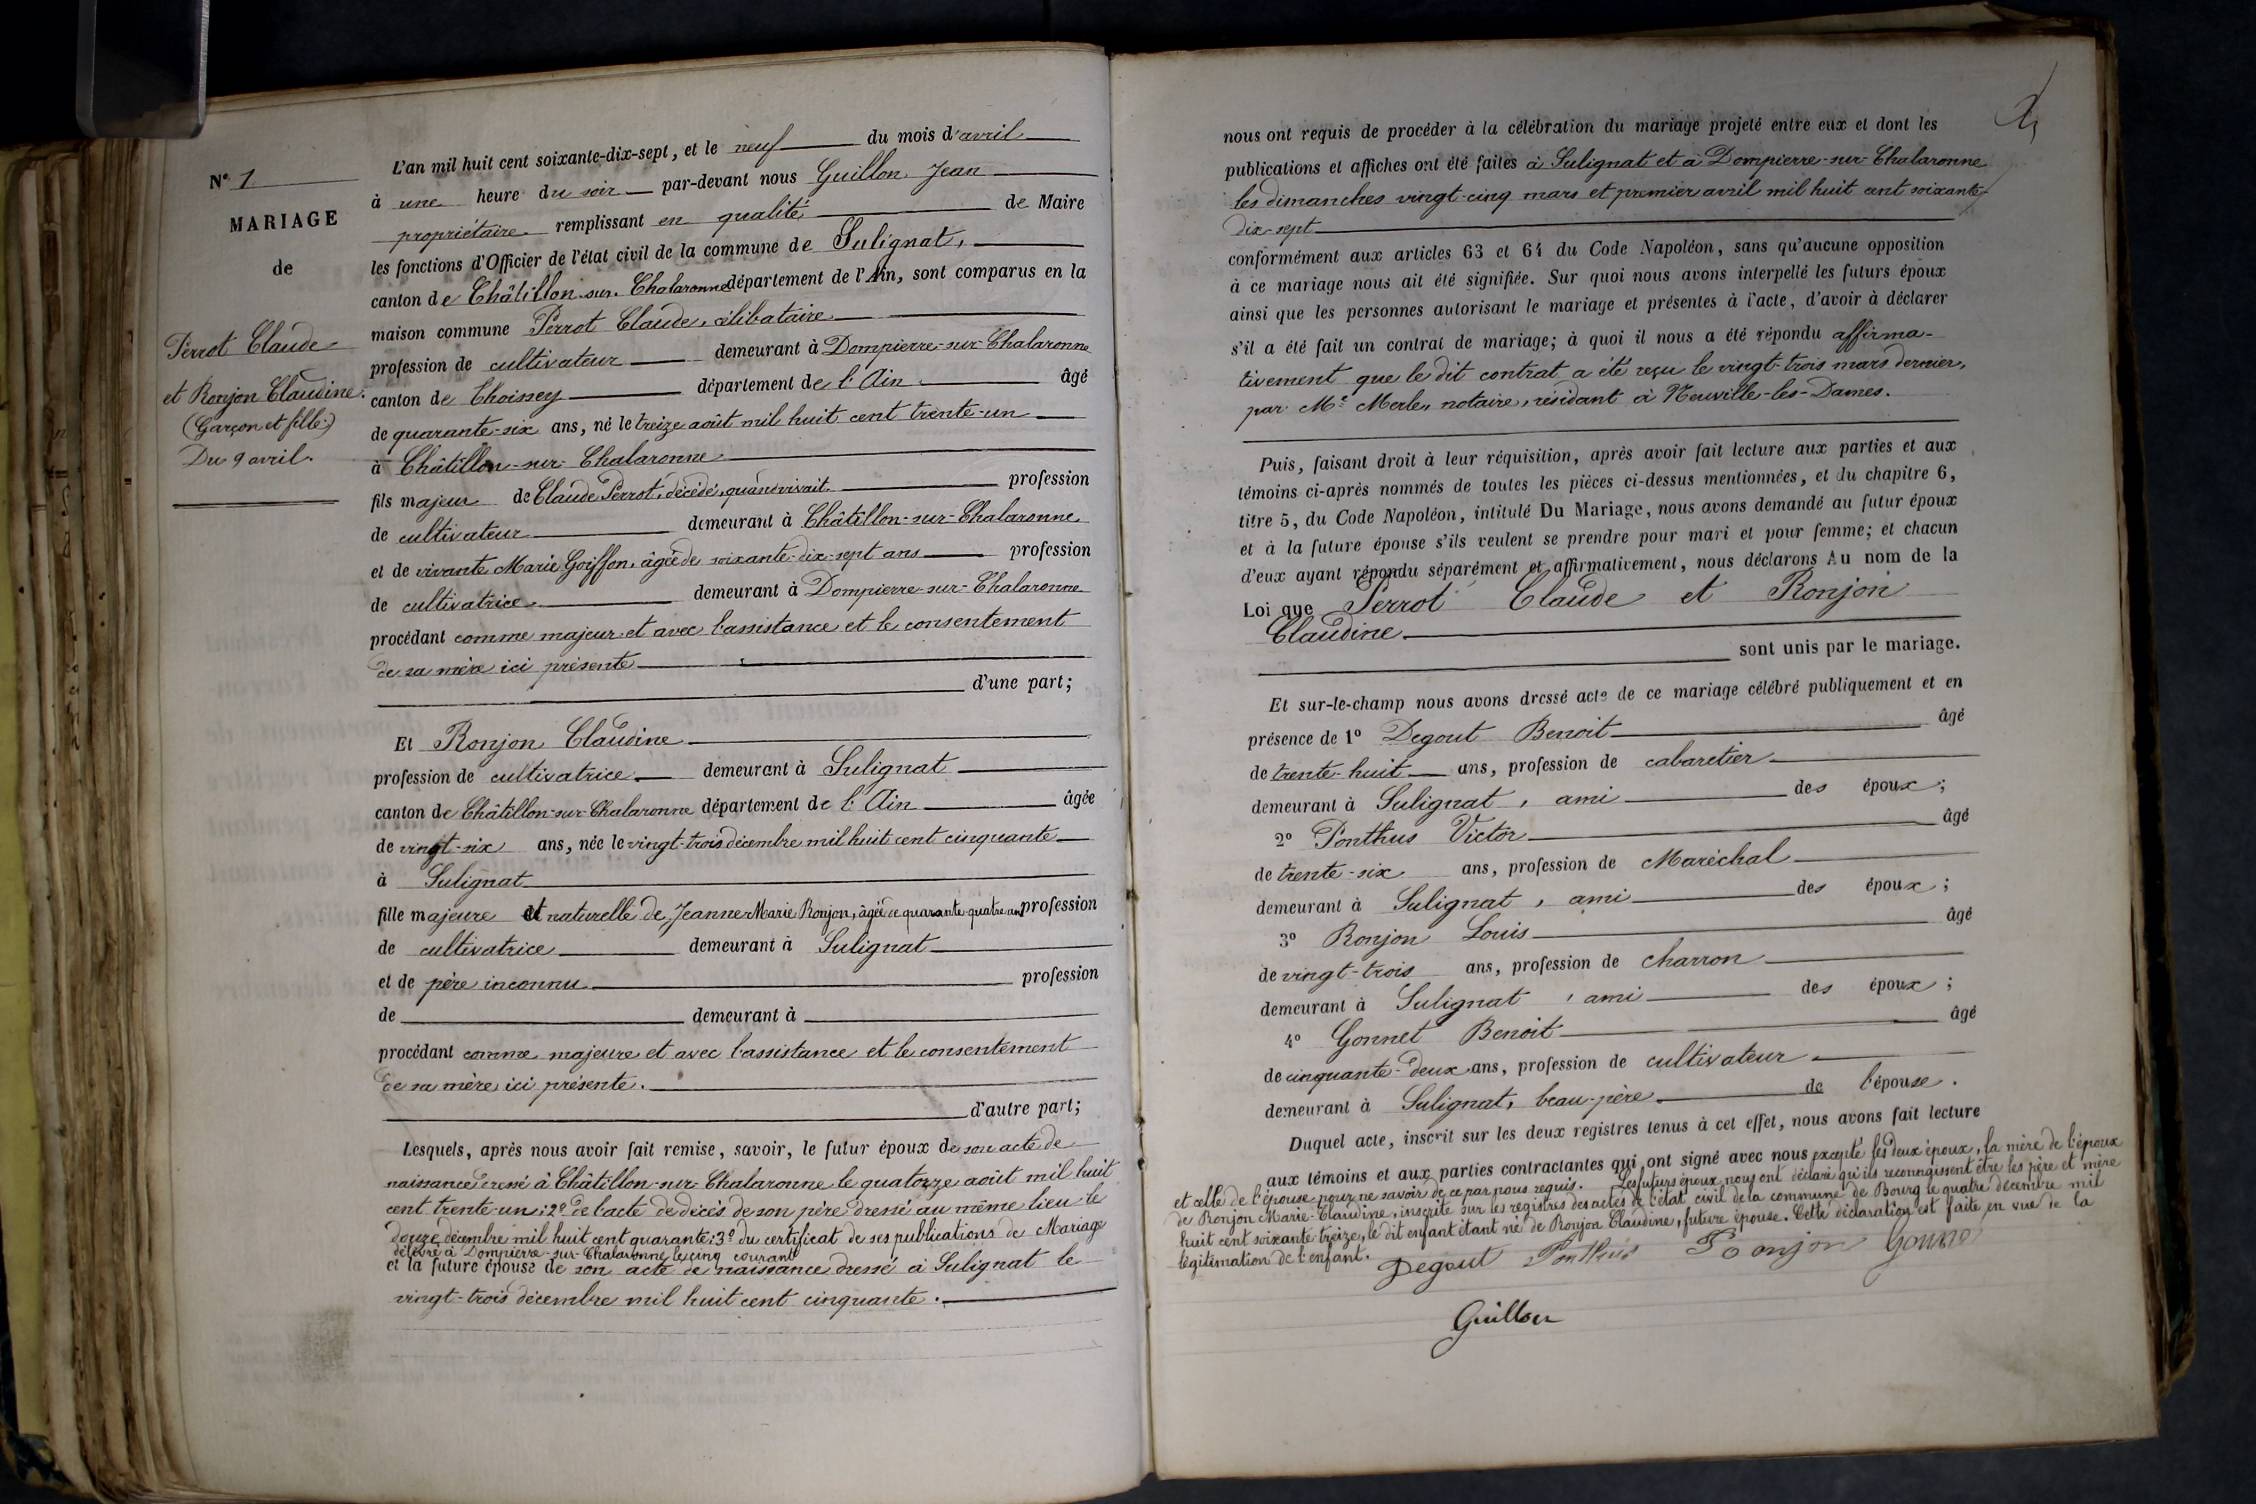 N° 1
MARIAGE
de
Perrot Claude
et Ronjon Claudine.
(Garçon et fille)
Du 9 avril.
L'an mil huit cent soixante-dix-sept, et le neuf du mois d'avril
à une heure du soir par-devant nous Guillon Jean
propriétaire remplissant en qualité de Maire
les fonctions d'Officier de l'état civil de la commune de Sulignat,
canton de Châtillon-sur-Chalaronne département de l'Ain, sont comparus en la
maison commune Perrot Claude, célibataire
profession de cultivateur demeurant à Dompierre-sur-Chalaronne
canton de Thoissey département de l'Ain âgé
de quarante-six ans, né le treize août mil huit cent trente-un
à Châtillon-sur-Chalaronne
fils majeur de Claude Perrot, décédé, quand vivait profession
de cultivateur demeurant à Châtillon-sur-Chalaronne
et de vivante Marie Goiffon, âgée de soixante-dix-sept ans profession
de cultivatrice demeurant à Dompierre-sur-Chalaronne
procédant comme majeur et avec l'assistance et le consentement
de sa mère ici présente
d'une part;
Et Ronjon Claudine
profession de cultivatrice demeurant à Sulignat
canton de Châtillon-sur-Chalaronne département de l'Ain âgée
de vingt-six ans, née le vingt-trois décembre mil huit cent cinquante
à Sulignat
fille majeure et naturelle de Jeanne Marie Ronjon, âgée de quarante-quatre ans profession
de cultivatrice demeurant à Sulignat
et de père inconnu profession
de demeurant à
procédant comme majeure et avec l'assistance et le consentement
de sa mère ici présente.
d'autre part;
Lesquels, après nous avoir fait remise, savoir, le futur époux de son acte de
naissance dressé à Châtillon-sur-Chalaronne le quatorze août mil huit
cent trente-un; 2° de l'acte de décès de son père dressé au même lieu le
douze décembre mil huit cent quarante; 3° du certificat de ses publications de Mariage
délivré à Dompierre-sur-Chalaronne le cinq courant
et la future épouse de son acte de naissance dressé à Sulignat le
vingt-trois décembre mil huit cent cinquante.
nous ont requis de procéder à la célébration du mariage projeté entre eux et dont les
publications et affiches ont été faites à Sulignat et à Dompierre-sur-Chalaronne
les dimanches vingt-cinq mars et premier avril mil huit cent soixante-
dix-sept
conformément aux articles 63 et 64 du Code Napoléon, sans qu'aucune opposition
à ce mariage nous ait été signifiée. Sur quoi nous avons interpellé les futurs époux
ainsi que les personnes autorisant le mariage et présentes à l'acte, d'avoir à déclarer
s'il a été fait un contrat de mariage; à quoi il nous a été répondu affirma-
tivement que le dit contrat a été reçu le vingt-trois mars dernier,
par Me Merle, notaire, résidant à Neuville-les-Dames.
Puis, faisant droit à leur réquisition, après avoir fait lecture aux parties et aux
témoins ci-après nommés de toutes les pièces ci-dessus mentionnées, et du chapitre 6,
titre 5, du Code Napoléon, intitulé Du Mariage, nous avons demandé au futur époux
et à la future épouse s'ils veulent se prendre pour mari et pour femme; et chacun
d'eux ayant répondu séparément et affirmativement, nous déclarons Au nom de la
Loi que Perrot Claude et Ronjon
Claudine
sont unis par le mariage.
Et sur-le-champ nous avons dressé acte de ce mariage célébré publiquement et en
présence de 1° Degout Benoit âgé
de trente-huit ans, profession de cabaretier
demeurant à Sulignat, ami des époux;
2° Ponthus Victor âgé
de trente-six ans, profession de Maréchal
demeurant à Sulignat, ami des époux;
3° Ronjon Louis âgé
de vingt-trois ans, profession de charron
demeurant à Sulignat, ami des époux;
4° Gonnet Benoit âgé
de cinquante-deux ans, profession de cultivateur
demeurant à Sulignat, beau-père de l'épouse.
Duquel acte, inscrit sur les deux registres tenus à cet effet, nous avons fait lecture
aux témoins et aux parties contractantes qui ont signé avec nous excepté les deux époux, la mère de l'époux
et celle de l'épouse pour ne savoir de ce par nous requis. Les futurs époux nous ont déclaré qu'ils reconnaissent être les père et mère
de Ronjon Marie-Claudine, inscrite sur les registres des actes de l'état civil de la commune de Bourg le quatre décembre mil
huit cent soixante treize, le dit enfant étant né de Ronjon Claudine, future épouse. Cette déclaration est faite en vue de la
légitimation de l'enfant.
Degout Ponthus Ronjon Gonnet
Guillon